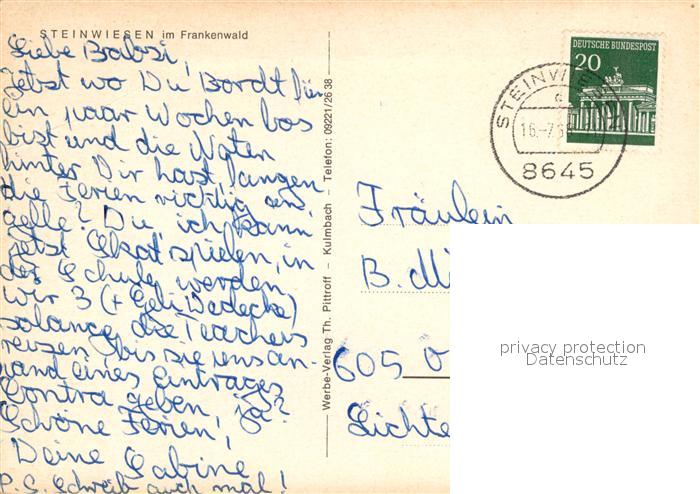 STEINWIESEN im Frankenwald
Liebe Babsi,
Jetzt wo Du Bordt für
ein paar Wochen los
bist und die Noten
hinter Dir hast, fangen
die Ferien richtig an,
gelle? Du, ich kann
jetzt Skat spielen, in
der Schule werden
wir 3 (+ Geli Dedecke)
solange die Teachers
reizen, bis sie uns an-
hand eines Eintrages
Contra geben, ja?
Schöne Ferien,
Deine Sabine
P.S. Schreib auch mal!
Werbe-Verlag Th. Pittroff – Kulmbach – Telefon: 09221/2638
DEUTSCHE BUNDESPOST
20
STEINWIES
16.-7.6
8645
Fräulein
B. Mi
605 O
Lichte
privacy protection
Datenschutz